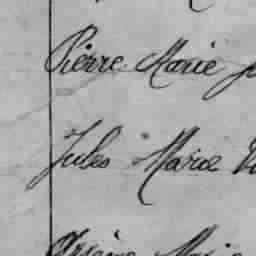 Pierre Marie
Jules Marie
Marie